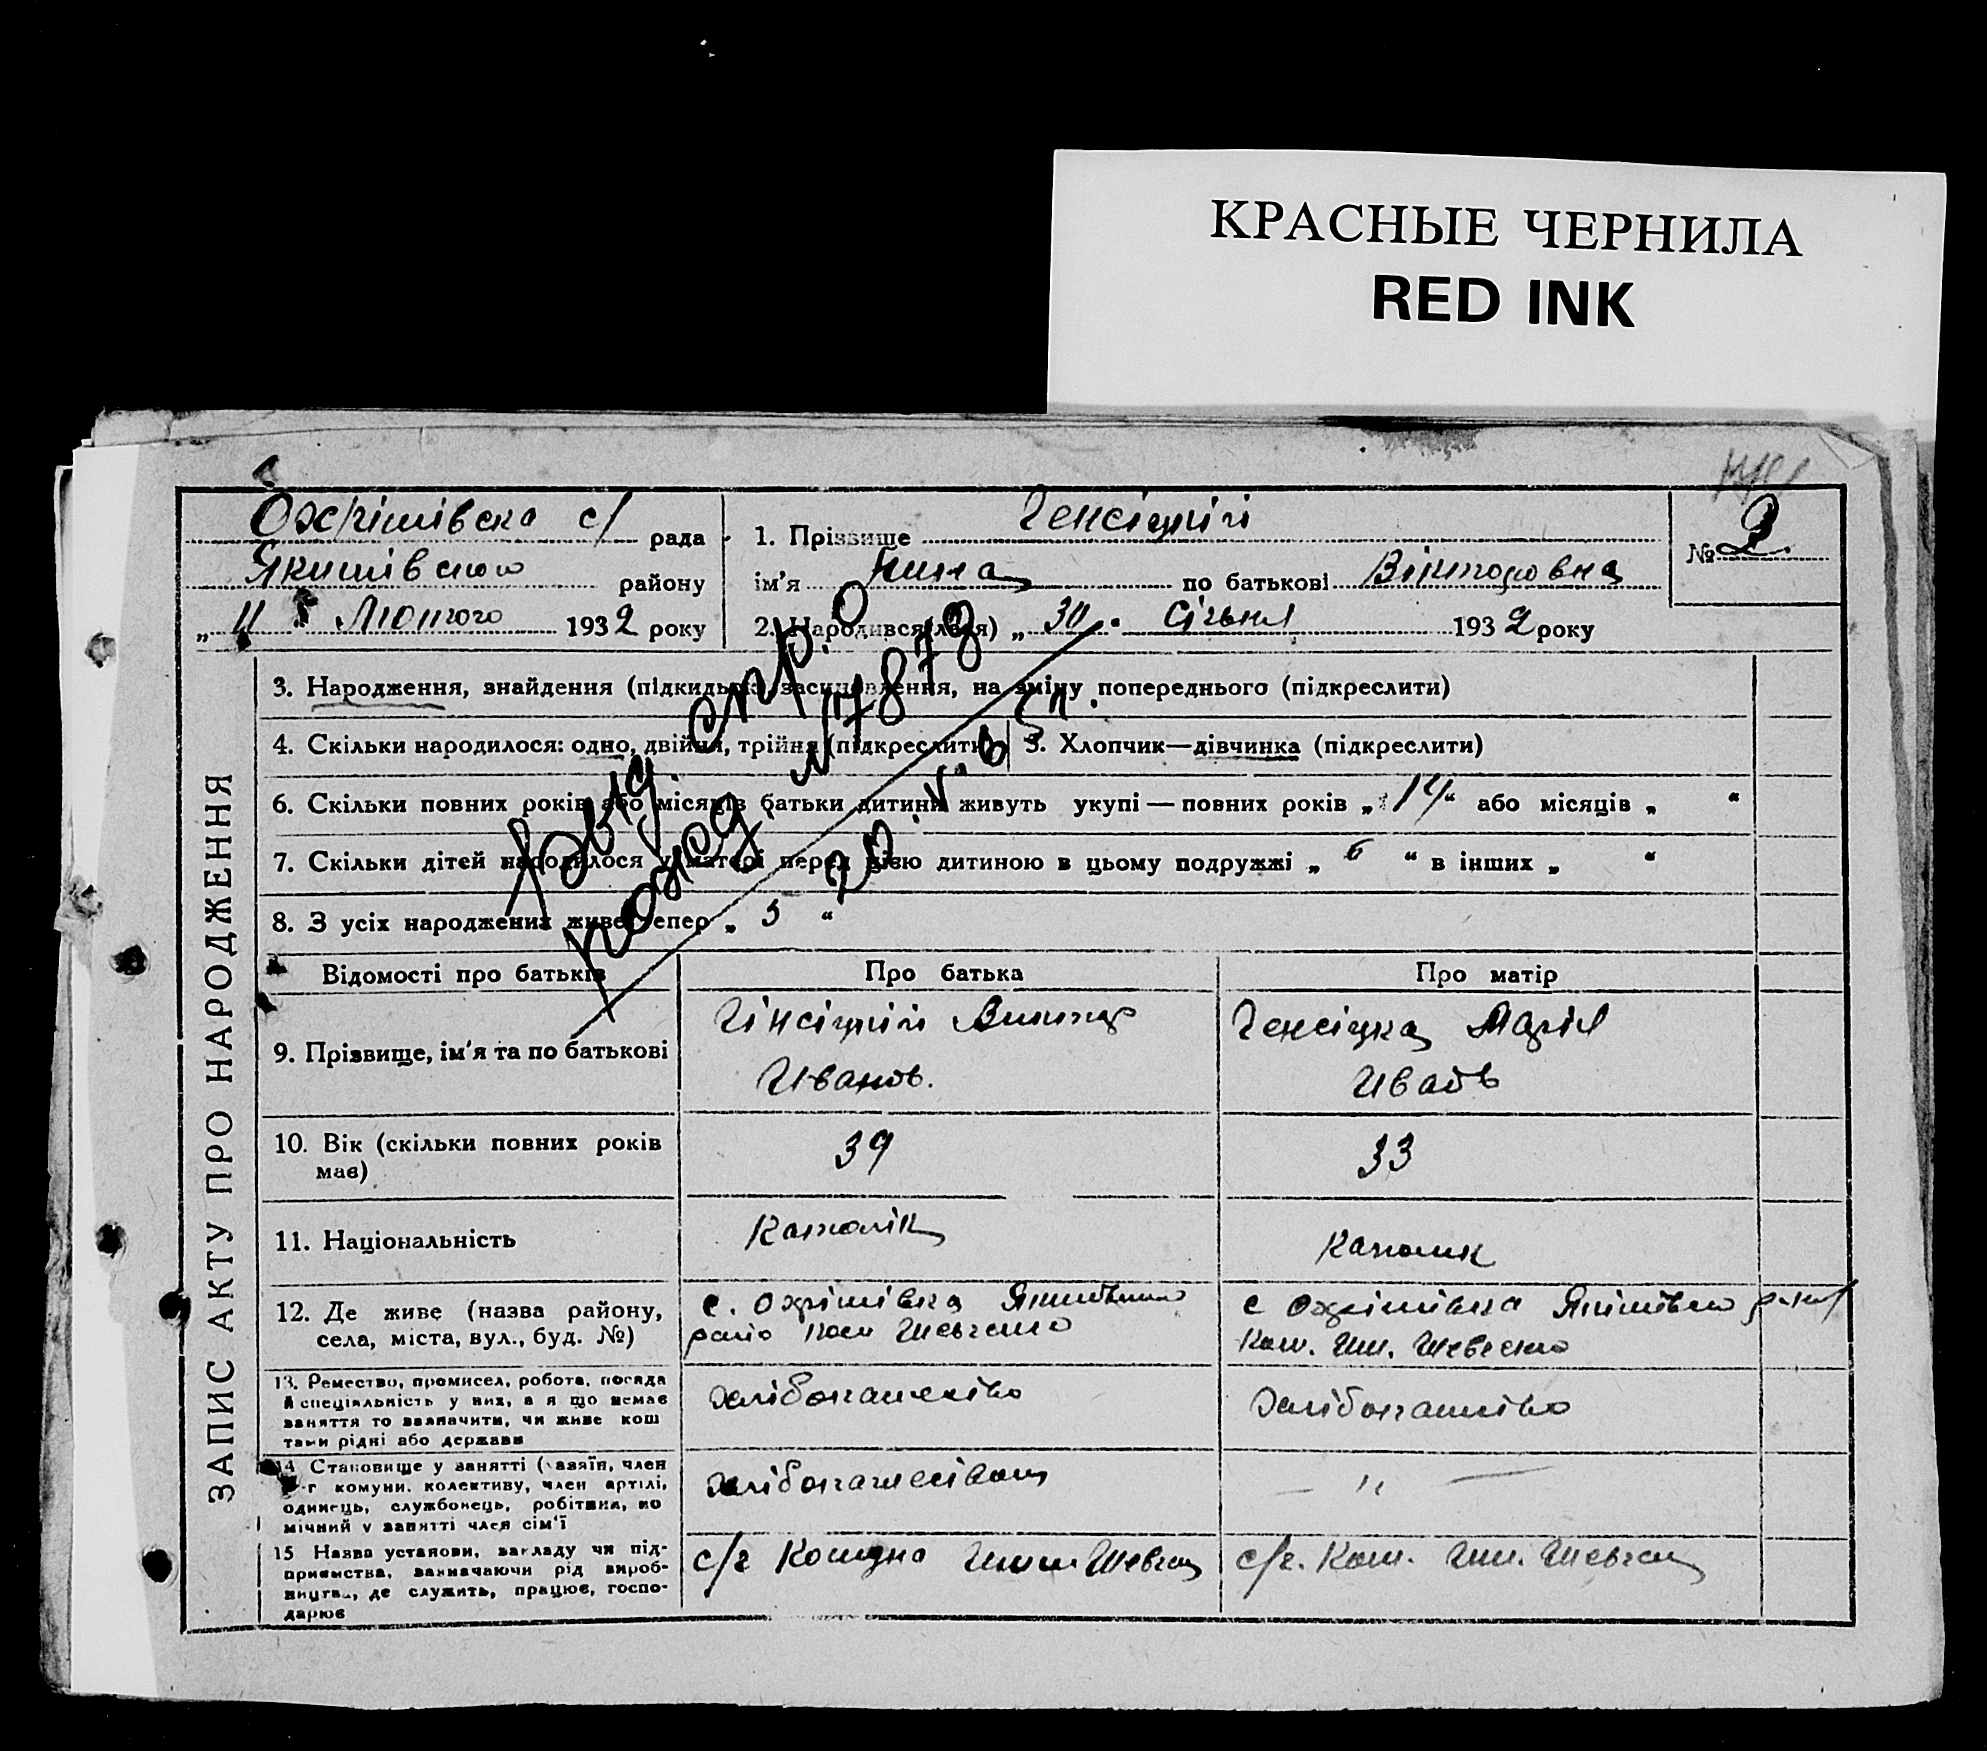 КРАСНЫЕ ЧЕРНИЛА
RED INK
ЗАПИС АКТУ ПРО НАРОДЖЕННЯ
Охрімівска с/ рада
Якимівського району
„ 11 “ Лютого 1932 року
1. Прізвище Ченсіцкій
ім'я Нина по батькові Вікторовна
2. Народився(лася) „ 30 “ Січьня 1932 року
№ 2.
3. Народження, знайдення (підкидька), засиновлення, на зміну попереднього (підкреслити)
4. Скільки народилося: одно, двійня, трійня (підкреслити)
5. Хлопчик—дівчинка (підкреслити)
6. Скільки повних років або місяців батьки дитини живуть укупі — повних років „ 14 “ або місяців „ “
7. Скільки дітей народилося у матері перед цією дитиною в цьому подружжі „ 6 “ в інших „ “
8. З усіх народжених живе тепер „ 5 “
Выд. спр. о
рожд. N 7873
20.V.65 г.
Відомості про батьків Про батька Про матір
9. Прізвище, ім'я та по батькові
Чінсіцкій Виктор
Иванов.
Ченсіцка Марія
Иванв
10. Вік (скільки повних років
має)
39
33
11. Національність
Католік
Католик
12. Де живе (назва району,
села, міста, вул., буд. №)
с. Охрімівка
Ком Шевченко
с Охрімівка
Ком. Им. Шевченко
13. Ремество, промисел, робота, посада
й спеціяльність у них, а я що немає
заняття то зазначити, чи живе кош
тами рідні або держави
хлібопашество
Хлібопашство
14. Становище у занятті (хазяїн, член
с-г комуни, колективу, член артілі,
одинець, службовець, робітник, по
мічний у занятті член сім'ї
— " —
15 Назва установи, закладу чи під-
приємства, зазначаючи рід вироб-
ництва, де служить, працює, госпо-
дарює
с/г Комуна Имени Шевчен
с/г. Ком. Им. Шевчен